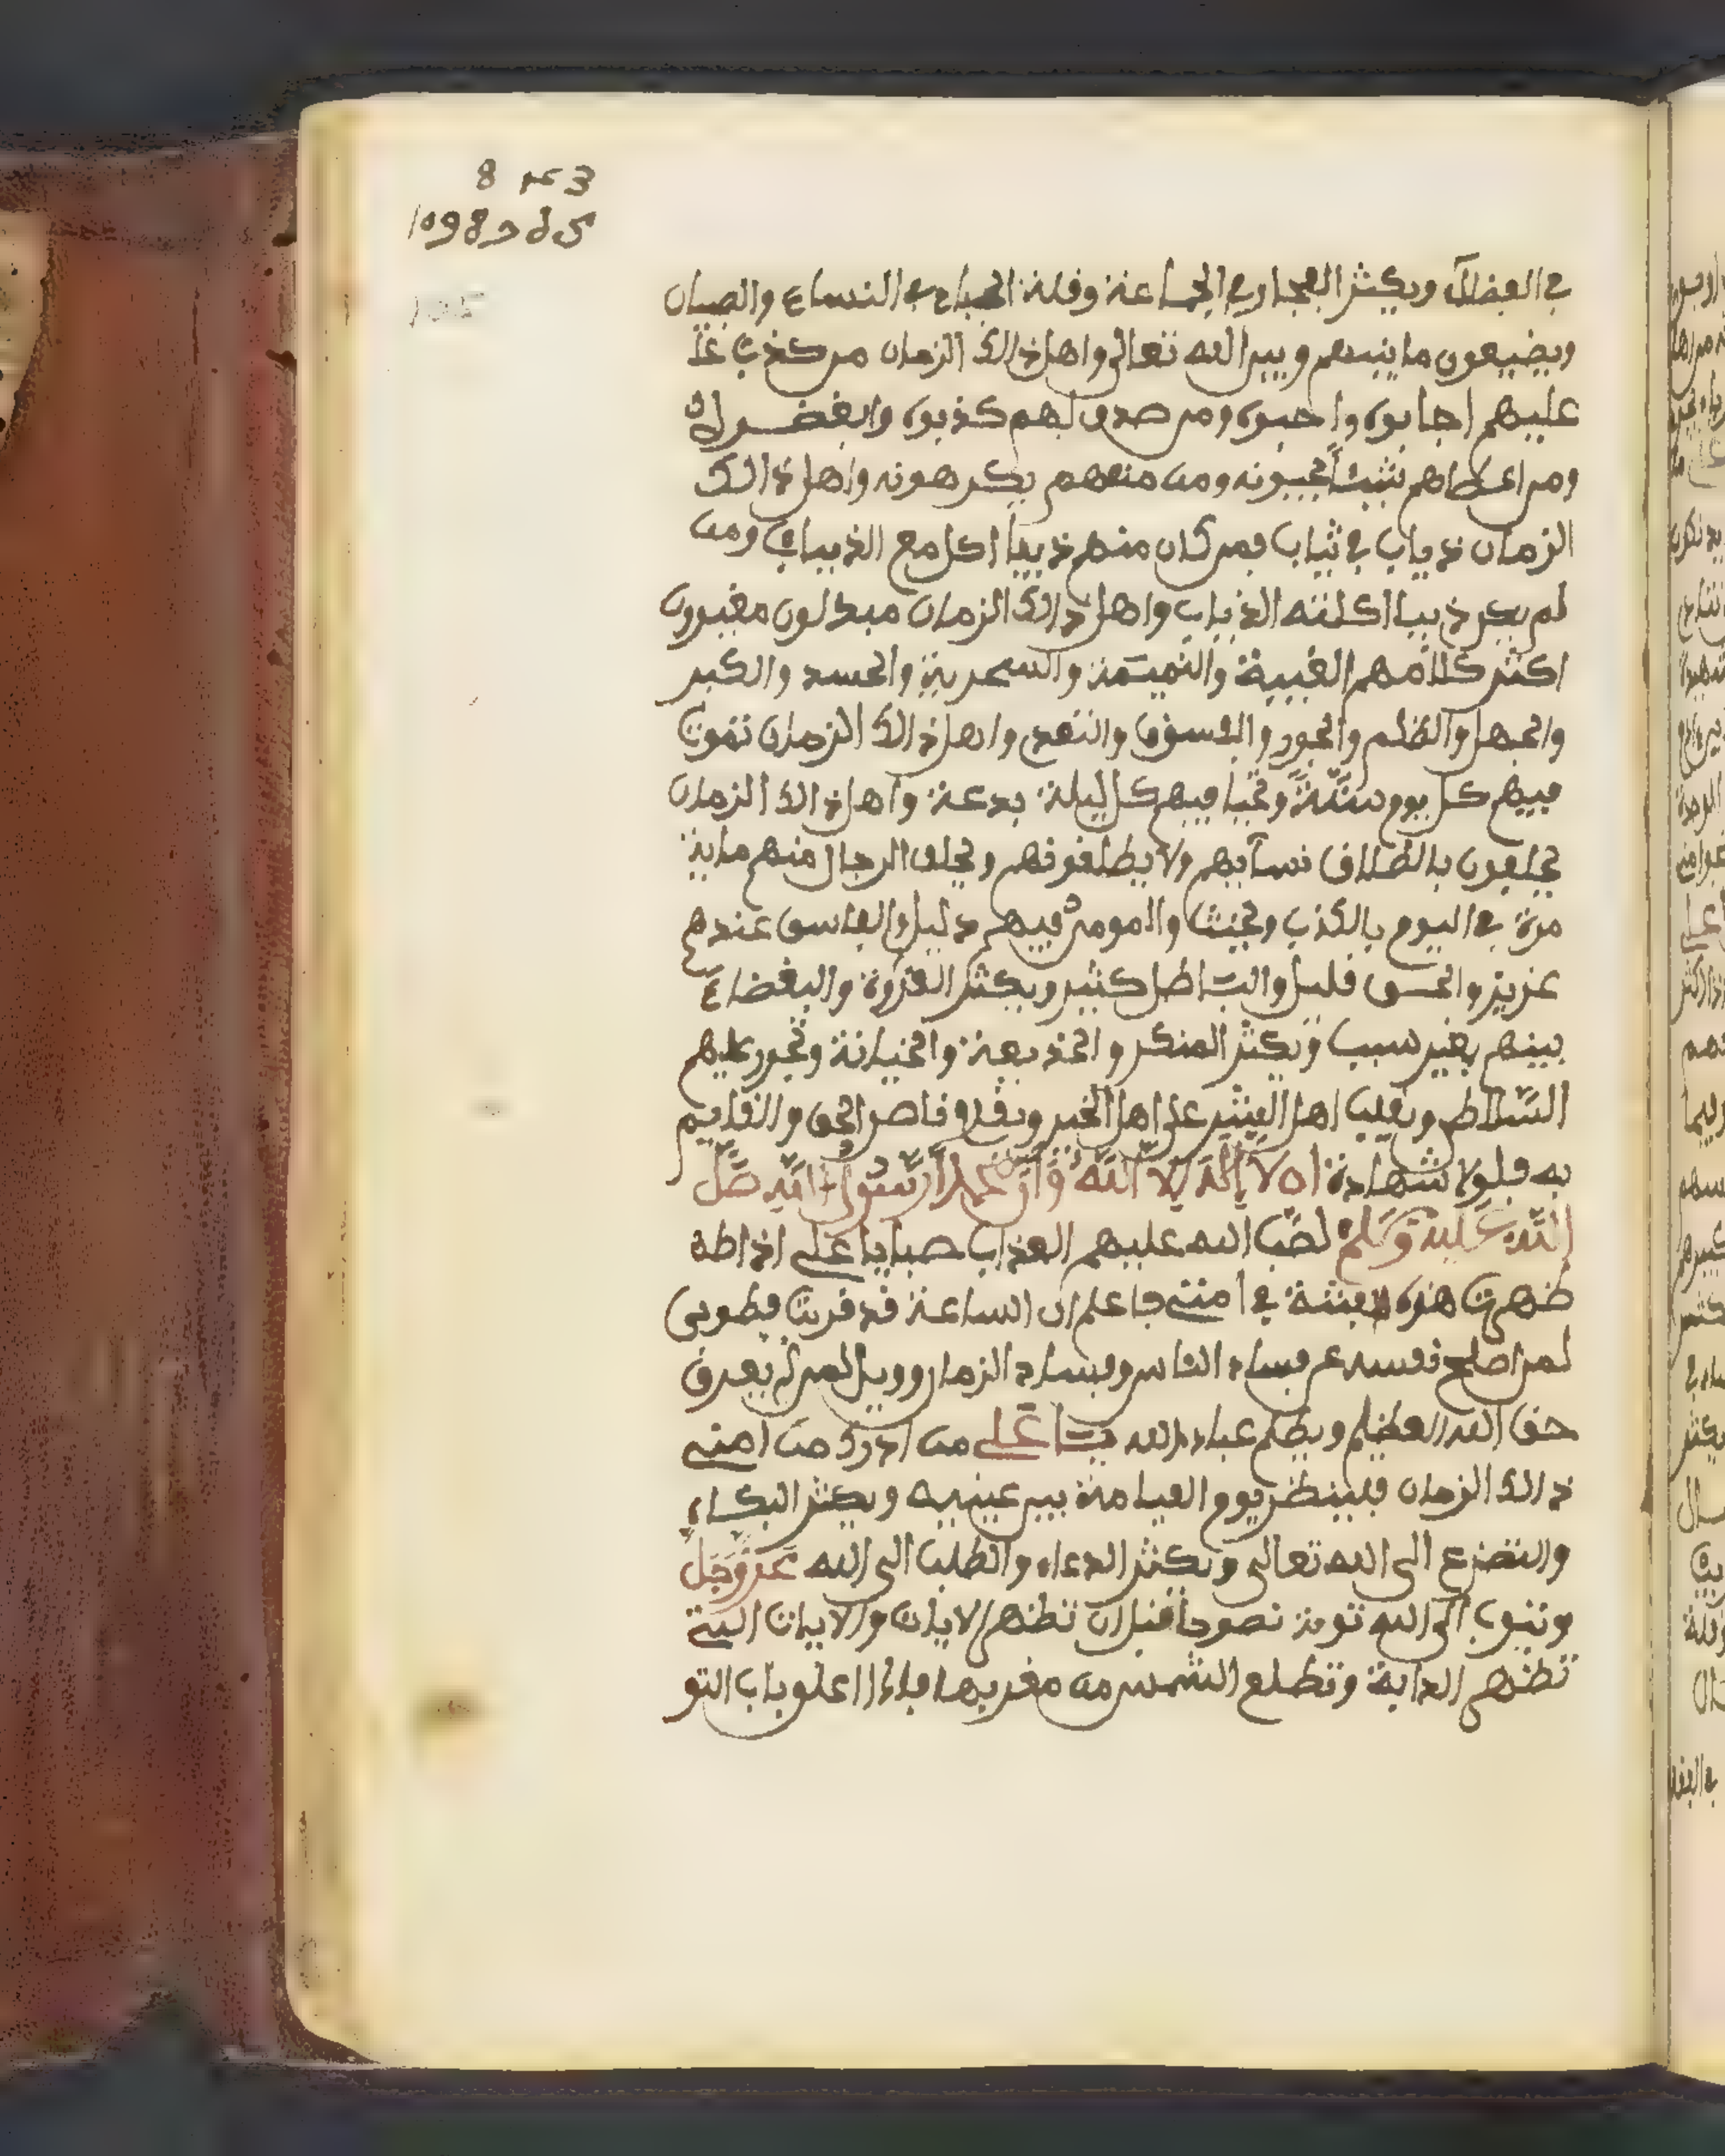 في الفضلآ ويكثر الفجار في الجماعة وقلة الحياء في النساء والصبيان
ويضيعون ما بينهم وبين الله تعالى واهل ذالك الزمان من كذب
عليهم اجابوه واحبوه ومن صدق لهم كذبوه وابغضوه
ومن اعطاهم شيئا يحبونه ومن منعهم يكرهونه واهل ذالك
الزمان ذياب في ثياب فمن كان منهم ذيبا اكل مع الذياب ومن
لم يكن ذيبا اكلته الذياب واهل ذالك الزمان مبدلون مغيرون
اكثر كلامهم الغيبة والنميمة والسخرية والحسد والكبر
والجهل والظلم والجور والفسوق والتعدي واهل ذالك الزمان تموت
فيهم كل يوم سنة وتحيا فيهم كل ليلة بدعة واهل ذالك الزمان
يحلفون بالطلاق نسآيهم ولا يطلقونهم ويحلف الرجال منهم ماية
مرة في اليوم بالكذب ويحنث والمومن فيهم ذليل والفاسق عندهم
عزيز والحق قليل والباطل كثير ويكثر العدوة والبغضاء
بينهم بغير سبب ويكثر المنكر والخديعة والخيانة وتجور عليهم
السلاطين ويغلب اهل الشر على اهل الخير ويقل ناصر الحق والقايم
به فلولا شهادة ان لا إله إلا الله وأن محمدا رسول الله صلى
الله عليه وسلم لصب الله عليهم العذاب صبا يا علي اذا
ظهرت هذه الفتنة في امتي فاعلم ان الساعة قد قربت فطوبى
لمن اصلح نفسه عن فساد الناس وفساد الزمان وويل لمن لم يعرف
حق الله العظيم ويظلم عباد الله يا علي من ادرك من امتي
ذالك الزمان فلينظر يوم القيامة بين عينيه ويكثر البكاء
والتضرع الى الله تعالى ويكثر الدعاء والطلب الى الله عز وجل
ويتوب الى الله توبة نصوحا قبل ان تظهر الايات والايات التي
تظهر الدابة وتطلع الشمس من مغربها فاذا اغلق باب التو
8 3